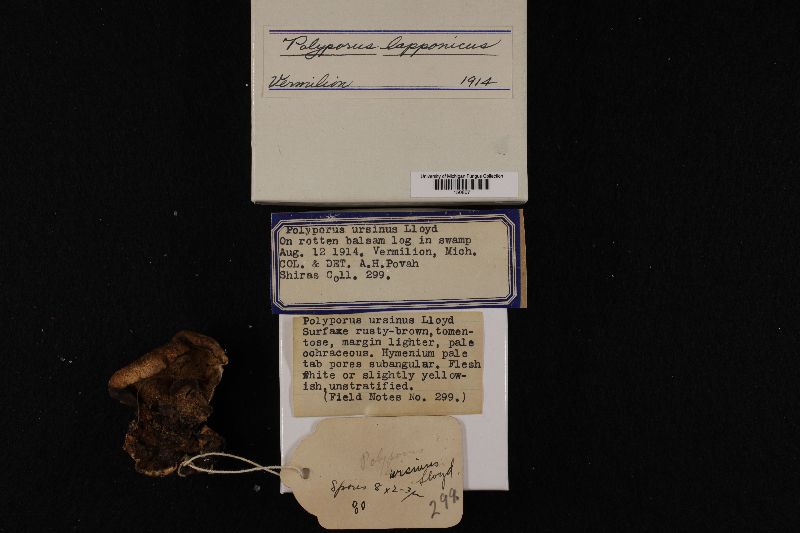 Polyporus lapponicus
Vermilion 1914
University of Michigan Fungus Collection
Polyporus ursinus Lloyd
On rotten balsam log in swamp
Aug. 12 1914. Vermilion, Mich.
COL. & DET. A.H.Povah
Shiras Coll. 299.
Polyporus ursinus Lloyd
Surfaxe rusty-brown, tomen-
tose, margin lighter, pale
ochraceous. Hymenium pale
tab pores subangular. Flesh
white or slightly yellow-
ish,unstratified.
(Field Notes No. 299.)
Polyporus
ursinus
Lloyd.
Spores 8 x 2-3µ
80
299